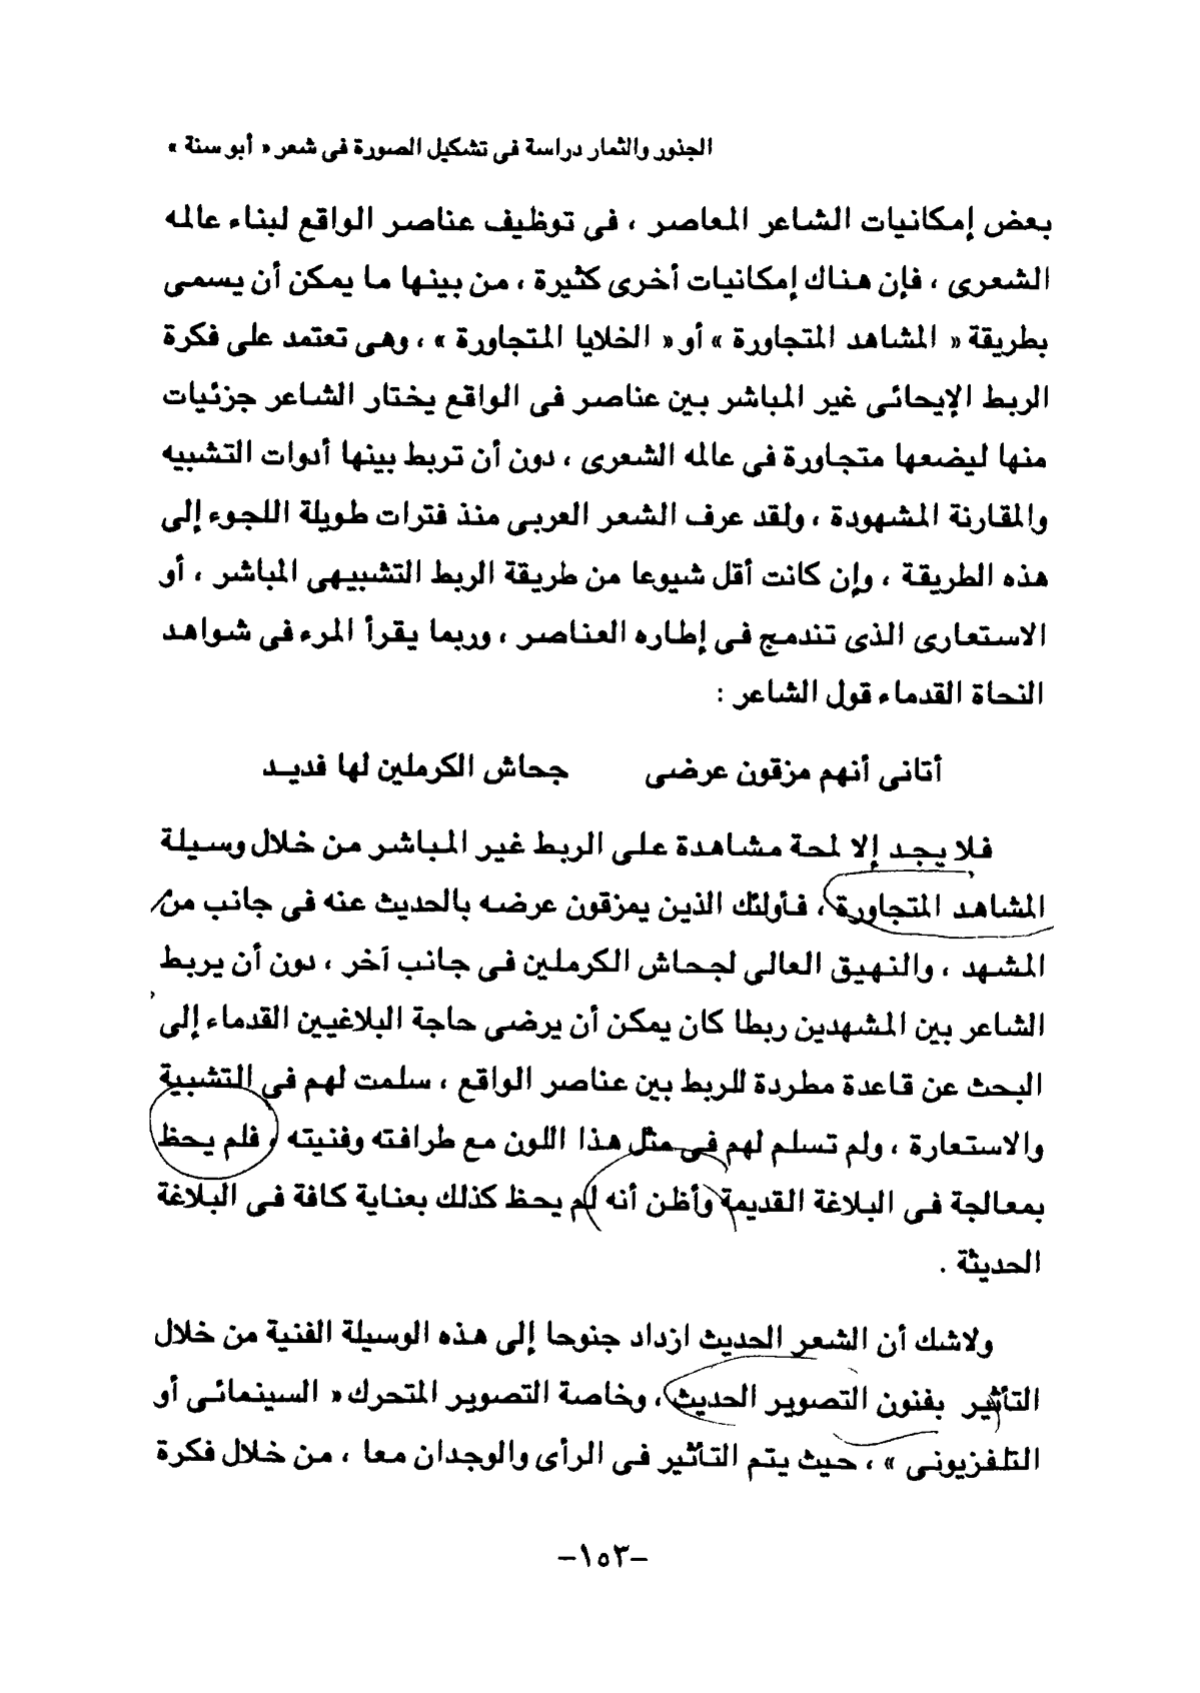 الجذور والثمار دراسة فى تشكيل الصورة فى شعر « أبو سنة »
بعض إمكانيات الشاعر المعاصر ، فى توظيف عناصر الواقع لبناء عالمه
الشعرى ، فإن هناك إمكانيات أخرى كثيرة ، من بينها ما يمكن أن يسمى
بطريقة « المشاهد المتجاورة » أو « الخلايا المتجاورة » ، وهى تعتمد على فكرة
الربط الإيحائى غير المباشر بين عناصر فى الواقع يختار الشاعر جزئيات
منها ليضعها متجاورة فى عالمه الشعرى ، دون أن تربط بينها أدوات التشبيه
والمقارنة المشهودة ، ولقد عرف الشعر العربى منذ فترات طويلة اللجوء إلى
هذه الطريقة ، وإن كانت أقل شيوعا من طريقة الربط التشبيهى المباشر ، أو
الاستعارى الذى تندمج فى إطاره العناصر ، وربما يقرأ المرء فى شواهد
النحاة القدماء قول الشاعر :
أتانى أنهم مزقون عرضى جحاش الكرملين لها فديد
فلا يجد إلا لمحة مشاهدة على الربط غير المباشر من خلال وسيلة
المشاهد المتجاورة ، فأولئك الذين يمزقون عرضه بالحديث عنه فى جانب من
المشهد ، والنهيق العالى لجحاش الكرملين فى جانب آخر ، دون أن يربط
الشاعر بين المشهدين ربطا كان يمكن أن يرضى حاجة البلاغيين القدماء إلى
البحث عن قاعدة مطردة للربط بين عناصر الواقع ، سلمت لهم فى التشبية
والاستعارة ، ولم تسلم لهم فى مثل هذا اللون مع طرافته وفنيته ، فلم يحظ
بمعالجة فى البلاغة القديمة وأظن أنه لم يحظ كذلك بعناية كافة فى البلاغة
الحديثة .
ولاشك أن الشعر الحديث ازداد جنوحا إلى هذه الوسيلة الفنية من خلال
التأثير بفنون التصوير الحديث ، وخاصة التصوير المتحرك « السينمائى أو
التلفزيونى » ، حيث يتم التأثير فى الرأى والوجدان معا ، من خلال فكرة
-١٥٣-